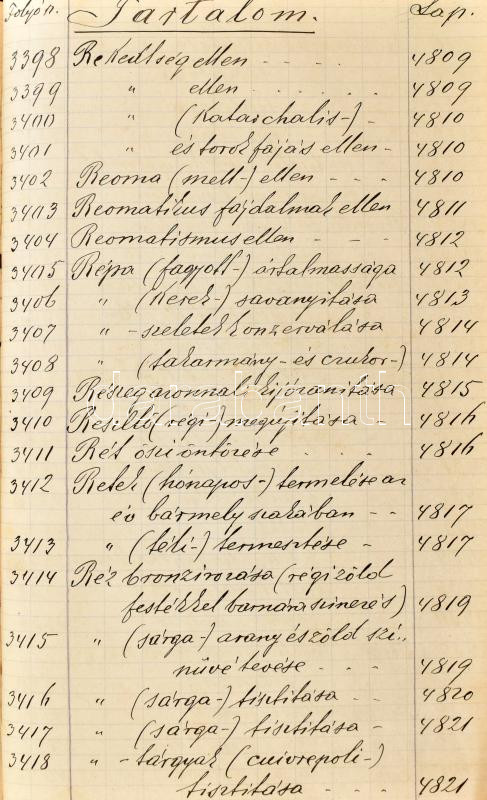 Folyó n. Tartalom. Lap.
3398 Rekedtség ellen - - - 4809
3399 " ellen . . . . . . 4809
3400 " (Katarchalis-) - 4810
3401 " és torokfájás ellen - 4810
3402 Reoma (mell-) ellen - - - 4810
3403 Reomatikus fájdalmak ellen 4811
3404 Reomatismus ellen - - - 4812
3405 Répa (fagyott-) ártalmassága 4812
3406 " (kerek-) savanyítása 4813
3407 " -szeletek konzerválása 4814
3408 " (takarmány- és czukor-) 4814
3409 Részeg azonnali kijózanítása 4815
3410 (régi-) megújítása - 4816
3411 Rét őszi öntözése . . . 4816
3412 Retek (hónapos-) termelése az
év bármely szakában - - 4817
3413 " (téli-) termesztése - 4817
3414 Réz bronzirozása (régi zöld
festékkel barnára szinezés) 4819
3415 " (sárga-) arany és zöld szí„
nűvé tevése - - - 4819
3416 " (sárga-) tisztitása - - 4820
3417 " (sárga-) tisztitása - 4821
3418 " -tárgyak (cuivrepoli-)
tisztitása - - - 4821